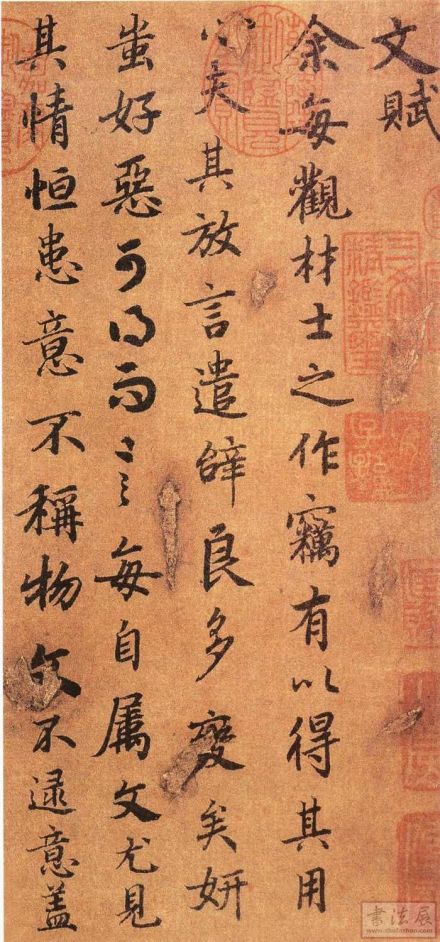 文賦
余每觀材士之作竊有以得其用
心夫其放言遣辭良多變矣妍
蚩好惡可得而言每自屬文尤見
其情恒患意不稱物文不逮意蓋
三希堂精鑑璽
宜子孫
書法展